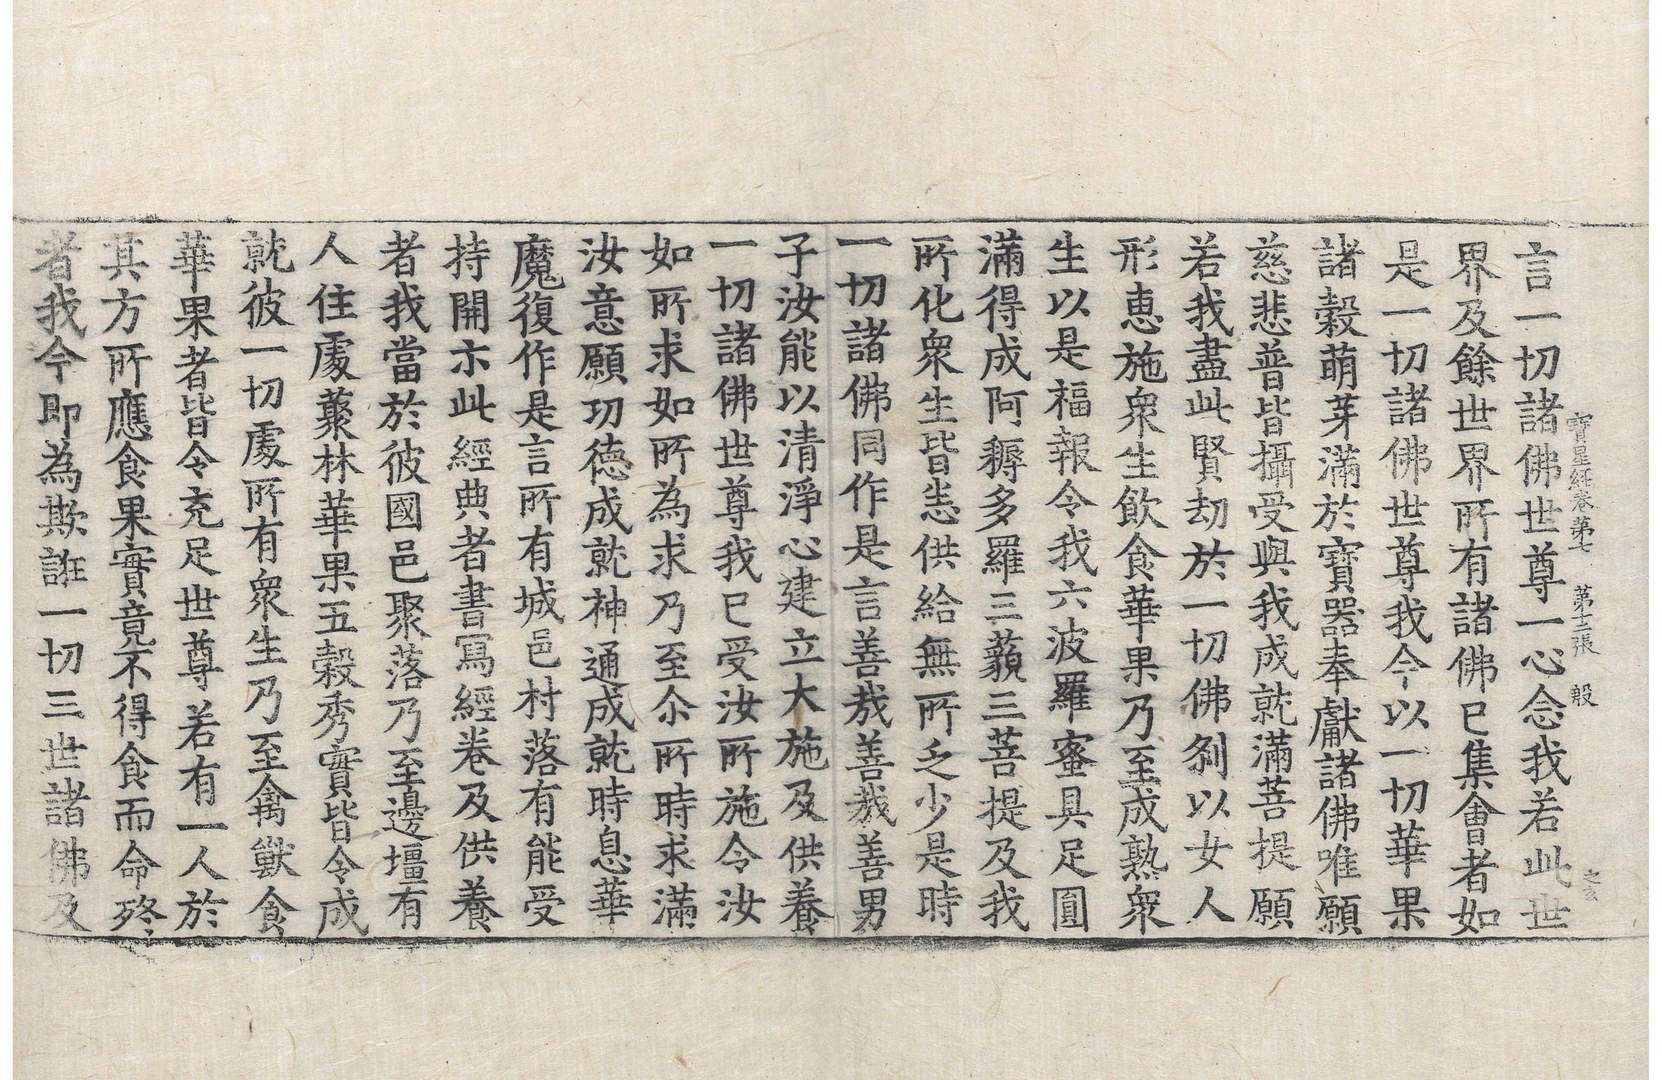 寶星經卷第七 第十二張 殷
言一切諸佛世尊一心念我若此世
界及餘世界所有諸佛已集會者如
是一切諸佛世尊我今以一切華果
諸穀萌芽滿於寶器奉獻諸佛唯願
慈悲普皆攝受與我成就滿菩提願
若我盡此賢劫於一切佛刹以女人
形恵施衆生飲食華果乃至成熟衆
生以是福報令我六波羅蜜具足圓
滿得成阿耨多羅三藐三菩提及我
所化衆生皆悉供給無所乏少是時
一切諸佛同作是言善哉善哉善男
子汝能以清淨心建立大施及供養
一切諸佛世尊我已受汝所施令汝
如所求如所為求乃至尒所時求滿
汝意願功德成就神通成就時息華
魔復作是言所有城邑村落有能受
持開示此經典者書寫經卷及供養
者我當於彼國邑聚落乃至邊壃有
人住處藂林華果五穀秀實皆令成
就彼一切處所有衆生乃至禽獸食
華果者皆令充足世尊若有一人於
其方所應食果實竟不得食而命終
者我今即為欺誑一切三世諸佛及